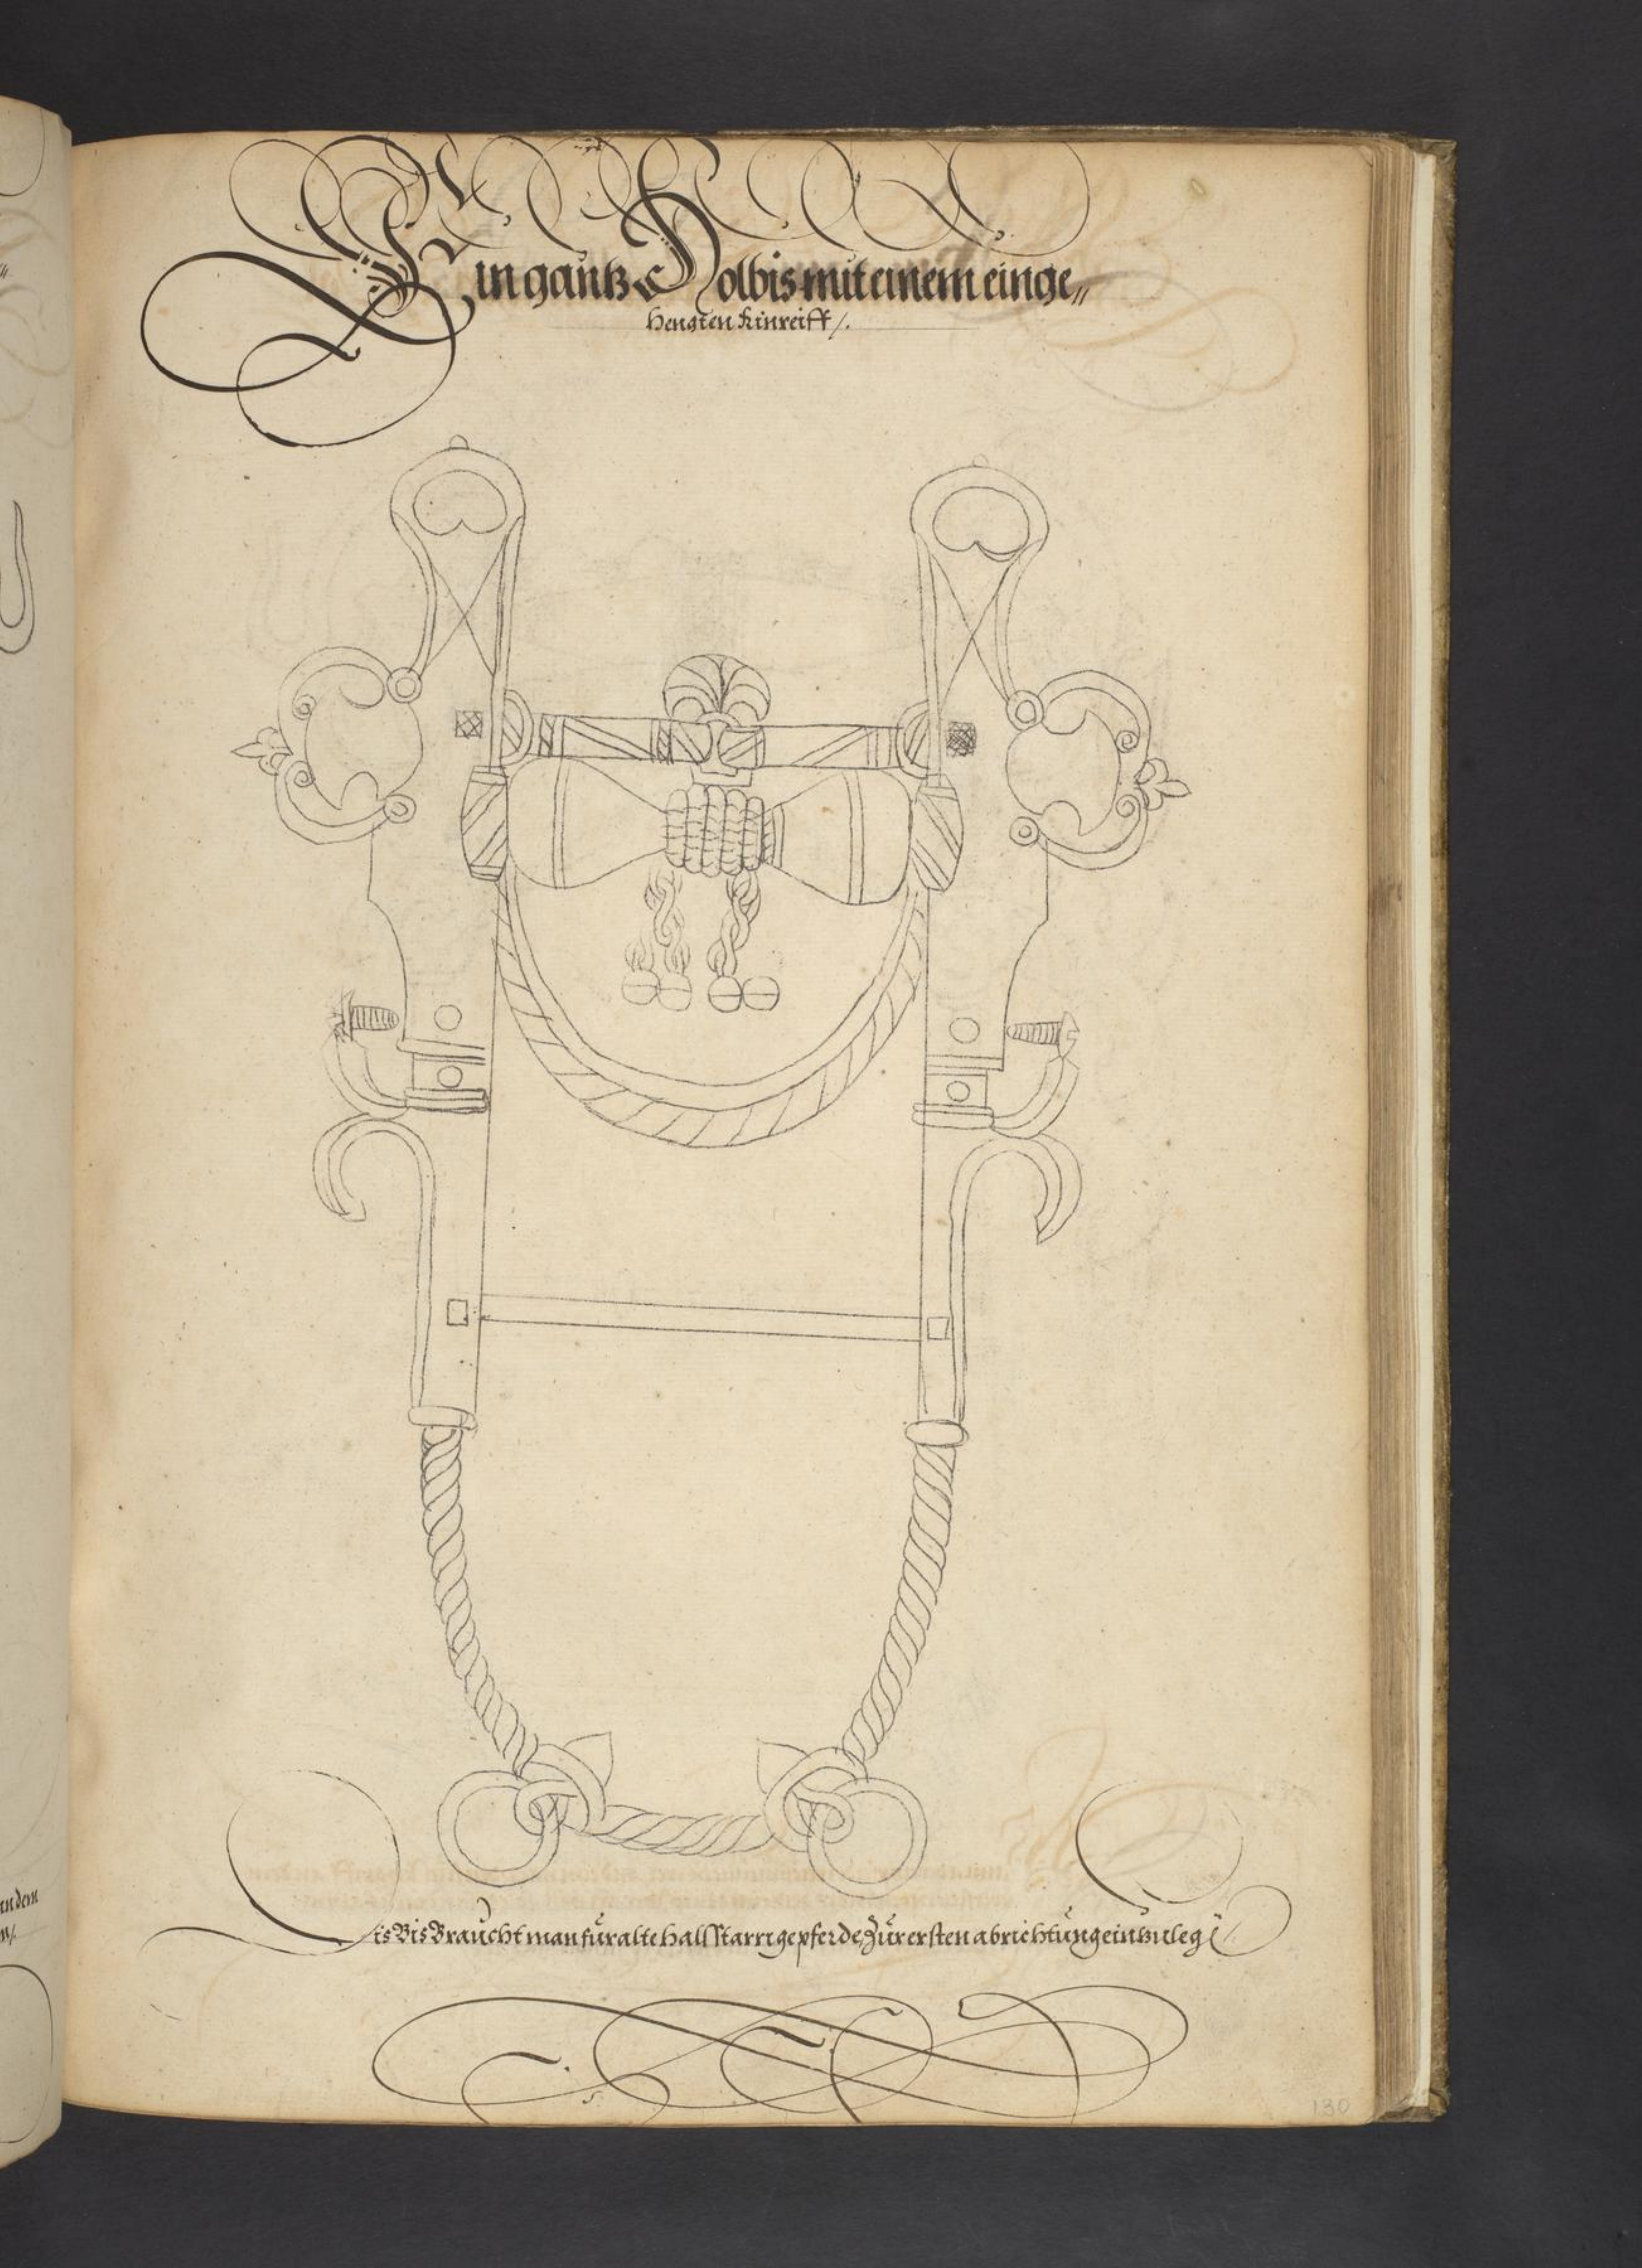 Ein gantz Holbis mit einem einge„
hengten kinreiff /.
Dis Bis Braucht man für alte hallstarrige pferde, Zur ersten abrichtung ein
130